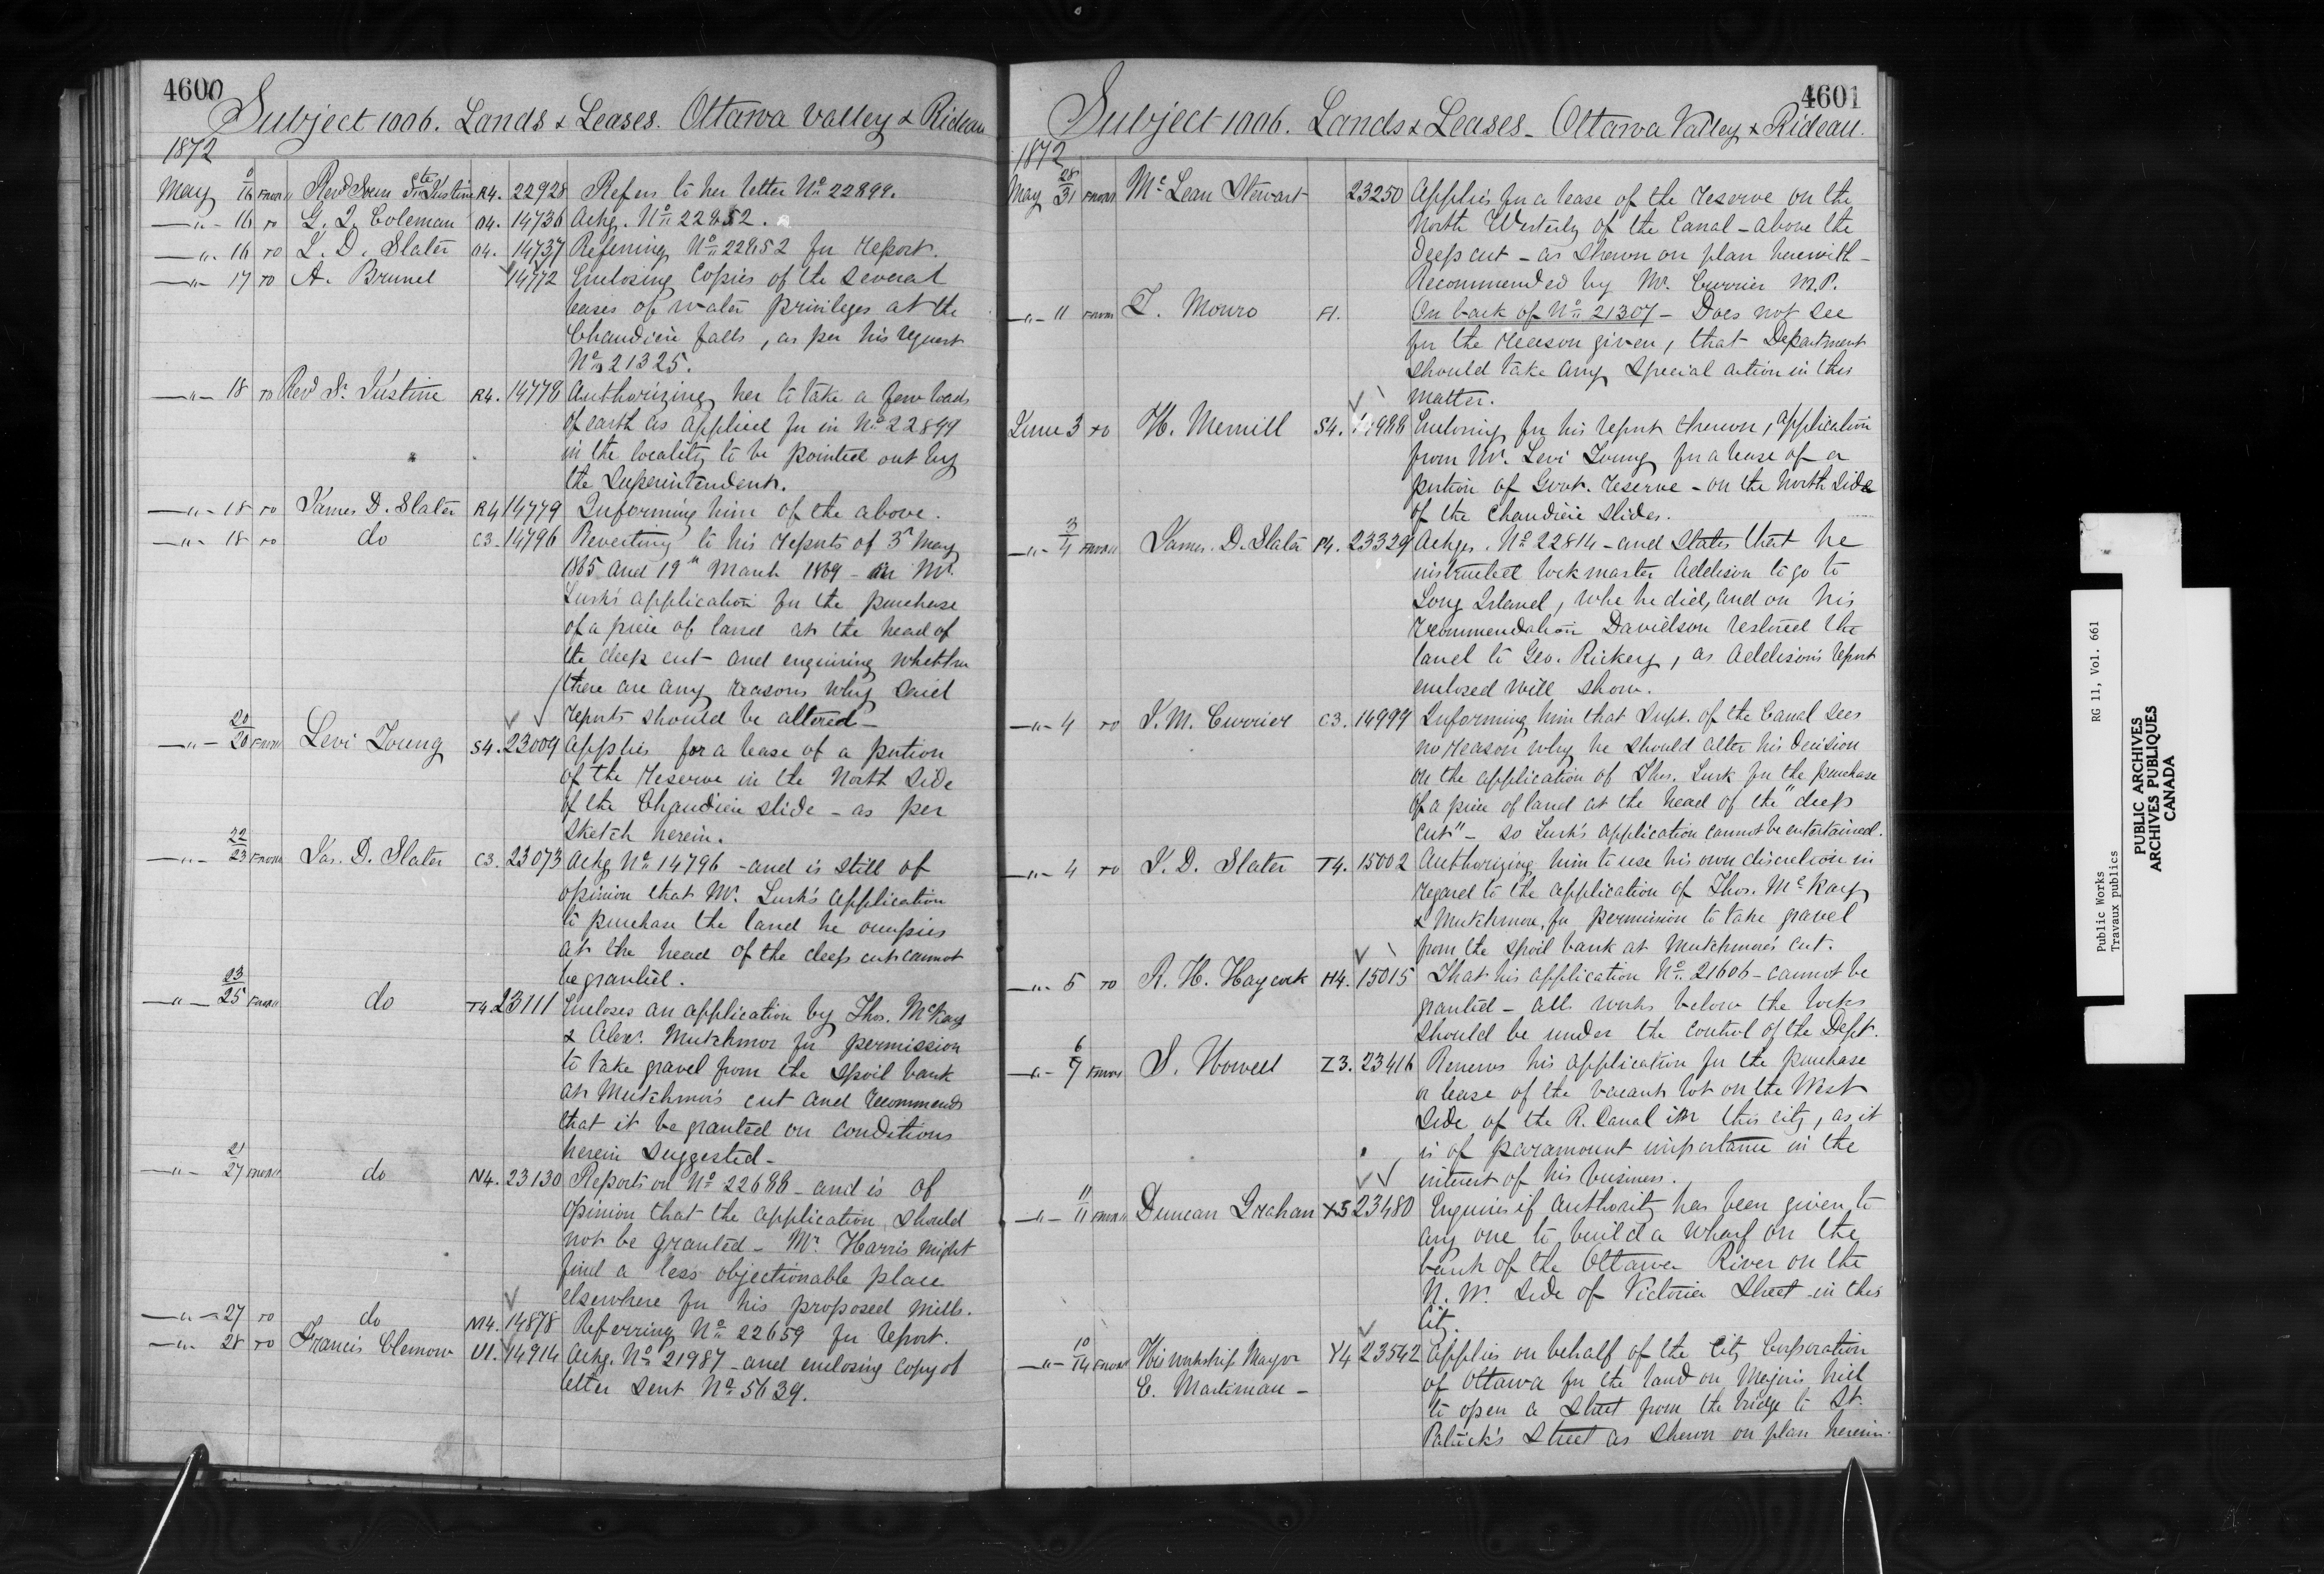 4600
Subject 1006. Lands & Leases. Ottawa Valley & Rideau
1872
May 16 FROM Revd Soeur Ste Justine R4. 22928 Refers to her letter No 22899.
—"— 16 TO G. L. Coleman O4. 14736 Ackg. No 22852.
—"— 16 TO J. D. Slater O4. 14737 Referring No 22852 for report.
—"— 17 TO A. Brunel 14772 Enclosing copies of the several
leases of water privileges at the
Chaudiere falls, as per his request
No 21325.
—"— 18 TO Revd Sr. Justine R4. 14778 Authorizing her to take a few loads
of earth as applied for in No 22899
in the locality to be pointed out by
the Superintendent.
—"— 18 TO James D. Slater R4 14779 Informing him of the above.
—"— 18 TO do C3. 14796 Reverting to his reports of 3d May
1865 and 19th March 1869 - on Mr.
Lusk's application for the purchase
of a piece of land at the head of
the deep cut - and enquiring whether
there are any reasons why said
reports should be altered -
—"— 20/20 FROM Levi Young S4. 23009 Applies for a lease of a portion
of the reserve in the North side
of the Chaudiere slide - as per
sketch herein.
—"— 22/23 FROM Jas. D. Slater C3. 23073 Ackg No 14796 - and is still of
opinion that Mr. Lusk's application
to purchase the land he occupies
at the head of the deep cut cannot
be granted.
—"— 23/25 FROM do T4. 23111 Encloses an application by Thos. McKay
& Alexr. Mutchmor for permission
to take gravel from the spoil bank
at Mutchmor's cut and recommends
that it be granted on conditions
herein suggested -
—"— 21/27 FROM do N4. 23130 Reports on No 22688 - and is of
opinion that the application should
not be granted - Mr. Harris might
find a less objectionable place
elsewhere for his proposed mills.
—"— 27 TO do M4. 14878 Referring No 22659 for report.
—"— 28 TO Francis Clemow U1. 14914 Ackg. No 21987 - and enclosing copy of
letter sent No 5639.
4601
Subject 1006. Lands & Leases - Ottawa Valley & Rideau.
1872
May 28/31 FROM McLean Stewart 23250 Applies for a lease of the reserve on the
North Westerly of the Canal - above the
Deep cut - as shewn on plan herewith -
Recommended by Mr. Currier M.P.
—"— 11 FROM T. Monro F1. On back of No 21307 - Does not see
for the reason given, that Department
should take any special action in this
matter.
June 3 TO H. Merrill S4. 14988 Enclosing for his report thereon, application
from Mr. Levi Young for a lease of a
portion of Govt. reserve - on the North side
of the Chaudiere slides.
—"— 3/4 FROM James. D. Slater P4. 23329 Ackges. No 22814 - and states that he
instructed lockmaster Addison to go to
Long Island, whe he did, and on his
recommendation Davidson restored the
land to Geo. Rickey, as Addison's report
enclosed will show.
—"— 4 TO J. M. Currier C3. 14999 Informing him that Supt. of the Canal sees
no reason why he should alter his decision
on the application of Thos. Lusk for the purchase
of a piece of land at the head of the "deep
cut" - so Lusk's application cannot be entertained.
—"— 4 TO J. D. Slater T4. 15002 Authorizing him to use his own discretion in
regard to the application of Thos. McKay
& Mutchmor, for permission to take gravel
from the spoil bank at Mutchmor's cut.
—"— 5 TO R. H. Haycock H4. 15015 That his application No 21606 - cannot be
granted - all works below the locks
should be under the control of the Dept.
—"— 6/7 FROM S. Howell Z3. 23416 Renews his application for the purchase
or lease of the vacant lot on the West
side of the R. Canal in this city, as it
is of paramount importance in the
interest of his business.
—"— 11/11 FROM Duncan Graham X3 23480 Enquires if authority has been given to
any one to build a wharf on the
bank of the Ottawa River on the
N. W. side of Victoria Street in this
City.
—"— 10/14 FROM His worship Mayor Y4 23542 Applies on behalf of the City Corporation
E. Martineau - of Ottawa for the land on Major's hill
to open a street from the bridge to St.
Patrick's Street as shewn on plan herein.
Public Works RG 11, Vol. 661
Travaux publics
PUBLIC ARCHIVES
ARCHIVES PUBLIQUES
CANADA